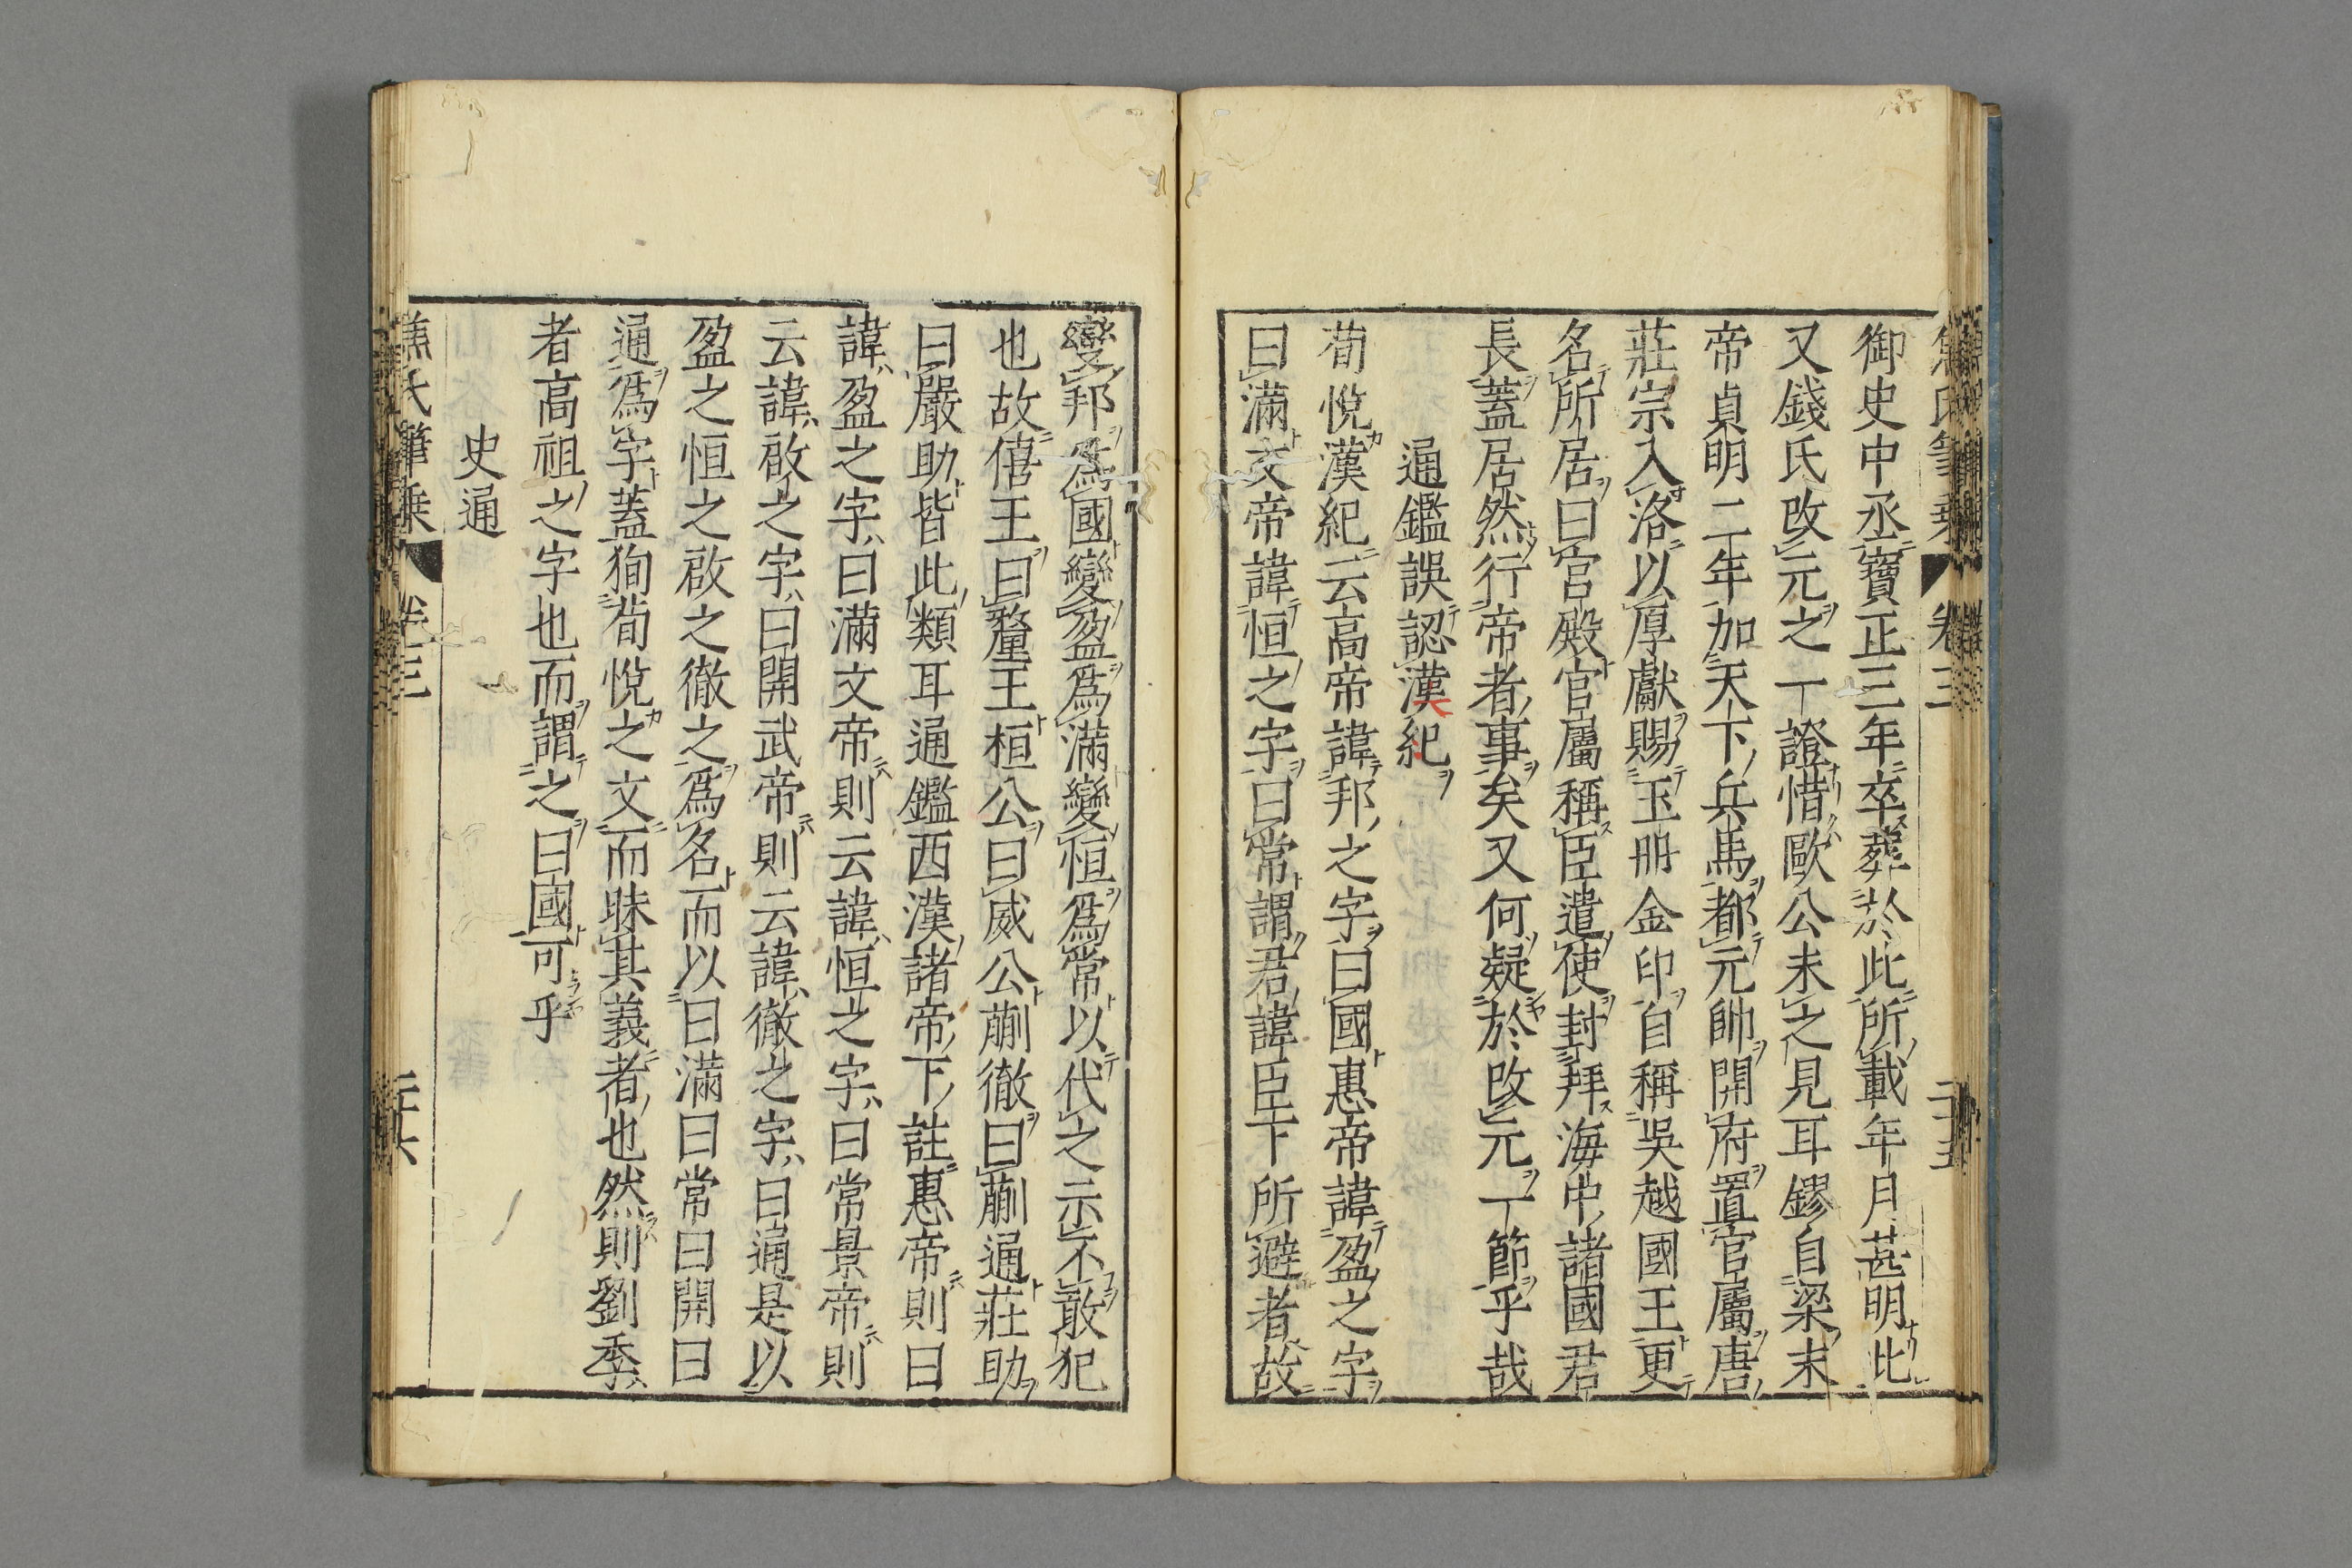 焦氏筆乗 卷三 二十五
御史中丞寶正三年卒葬於此所載年月甚明此
又錢氏改元之一證惜歐公未之見耳鏐自梁末
帝貞明二年加天下兵馬都元帥開府置官屬唐
莊宗入洛以厚獻賜玉册金印自稱吳越國王更
名所居曰宮殿官屬稱臣遣使封拜海中諸國君
長蓋居然行帝者事矣又何疑於改元一節乎哉
通鑑誤認漢紀
荀悅漢紀云高帝諱邦之字曰國惠帝諱盈之字
曰滿文帝諱恒之字曰常謂君諱臣下所避者故
變邦爲國變盈爲滿變恒爲常以代之示不敢犯
也故僖王曰釐王桓公曰威公蒯徹曰蒯通莊助
曰嚴助皆此類耳通鑑西漢諸帝下註惠帝則曰
諱盈之字曰滿文帝則云諱恒之字曰常景帝則
云諱啟之字曰開武帝則云諱徹之字曰通是以
盈之恒之啟之徹之爲名而以曰滿曰常曰開曰
通爲字蓋狥荀悅之文而昧其義者也然則劉季
者高祖之字也而謂之曰國可乎
史通
焦氏筆乗 卷三 二十六